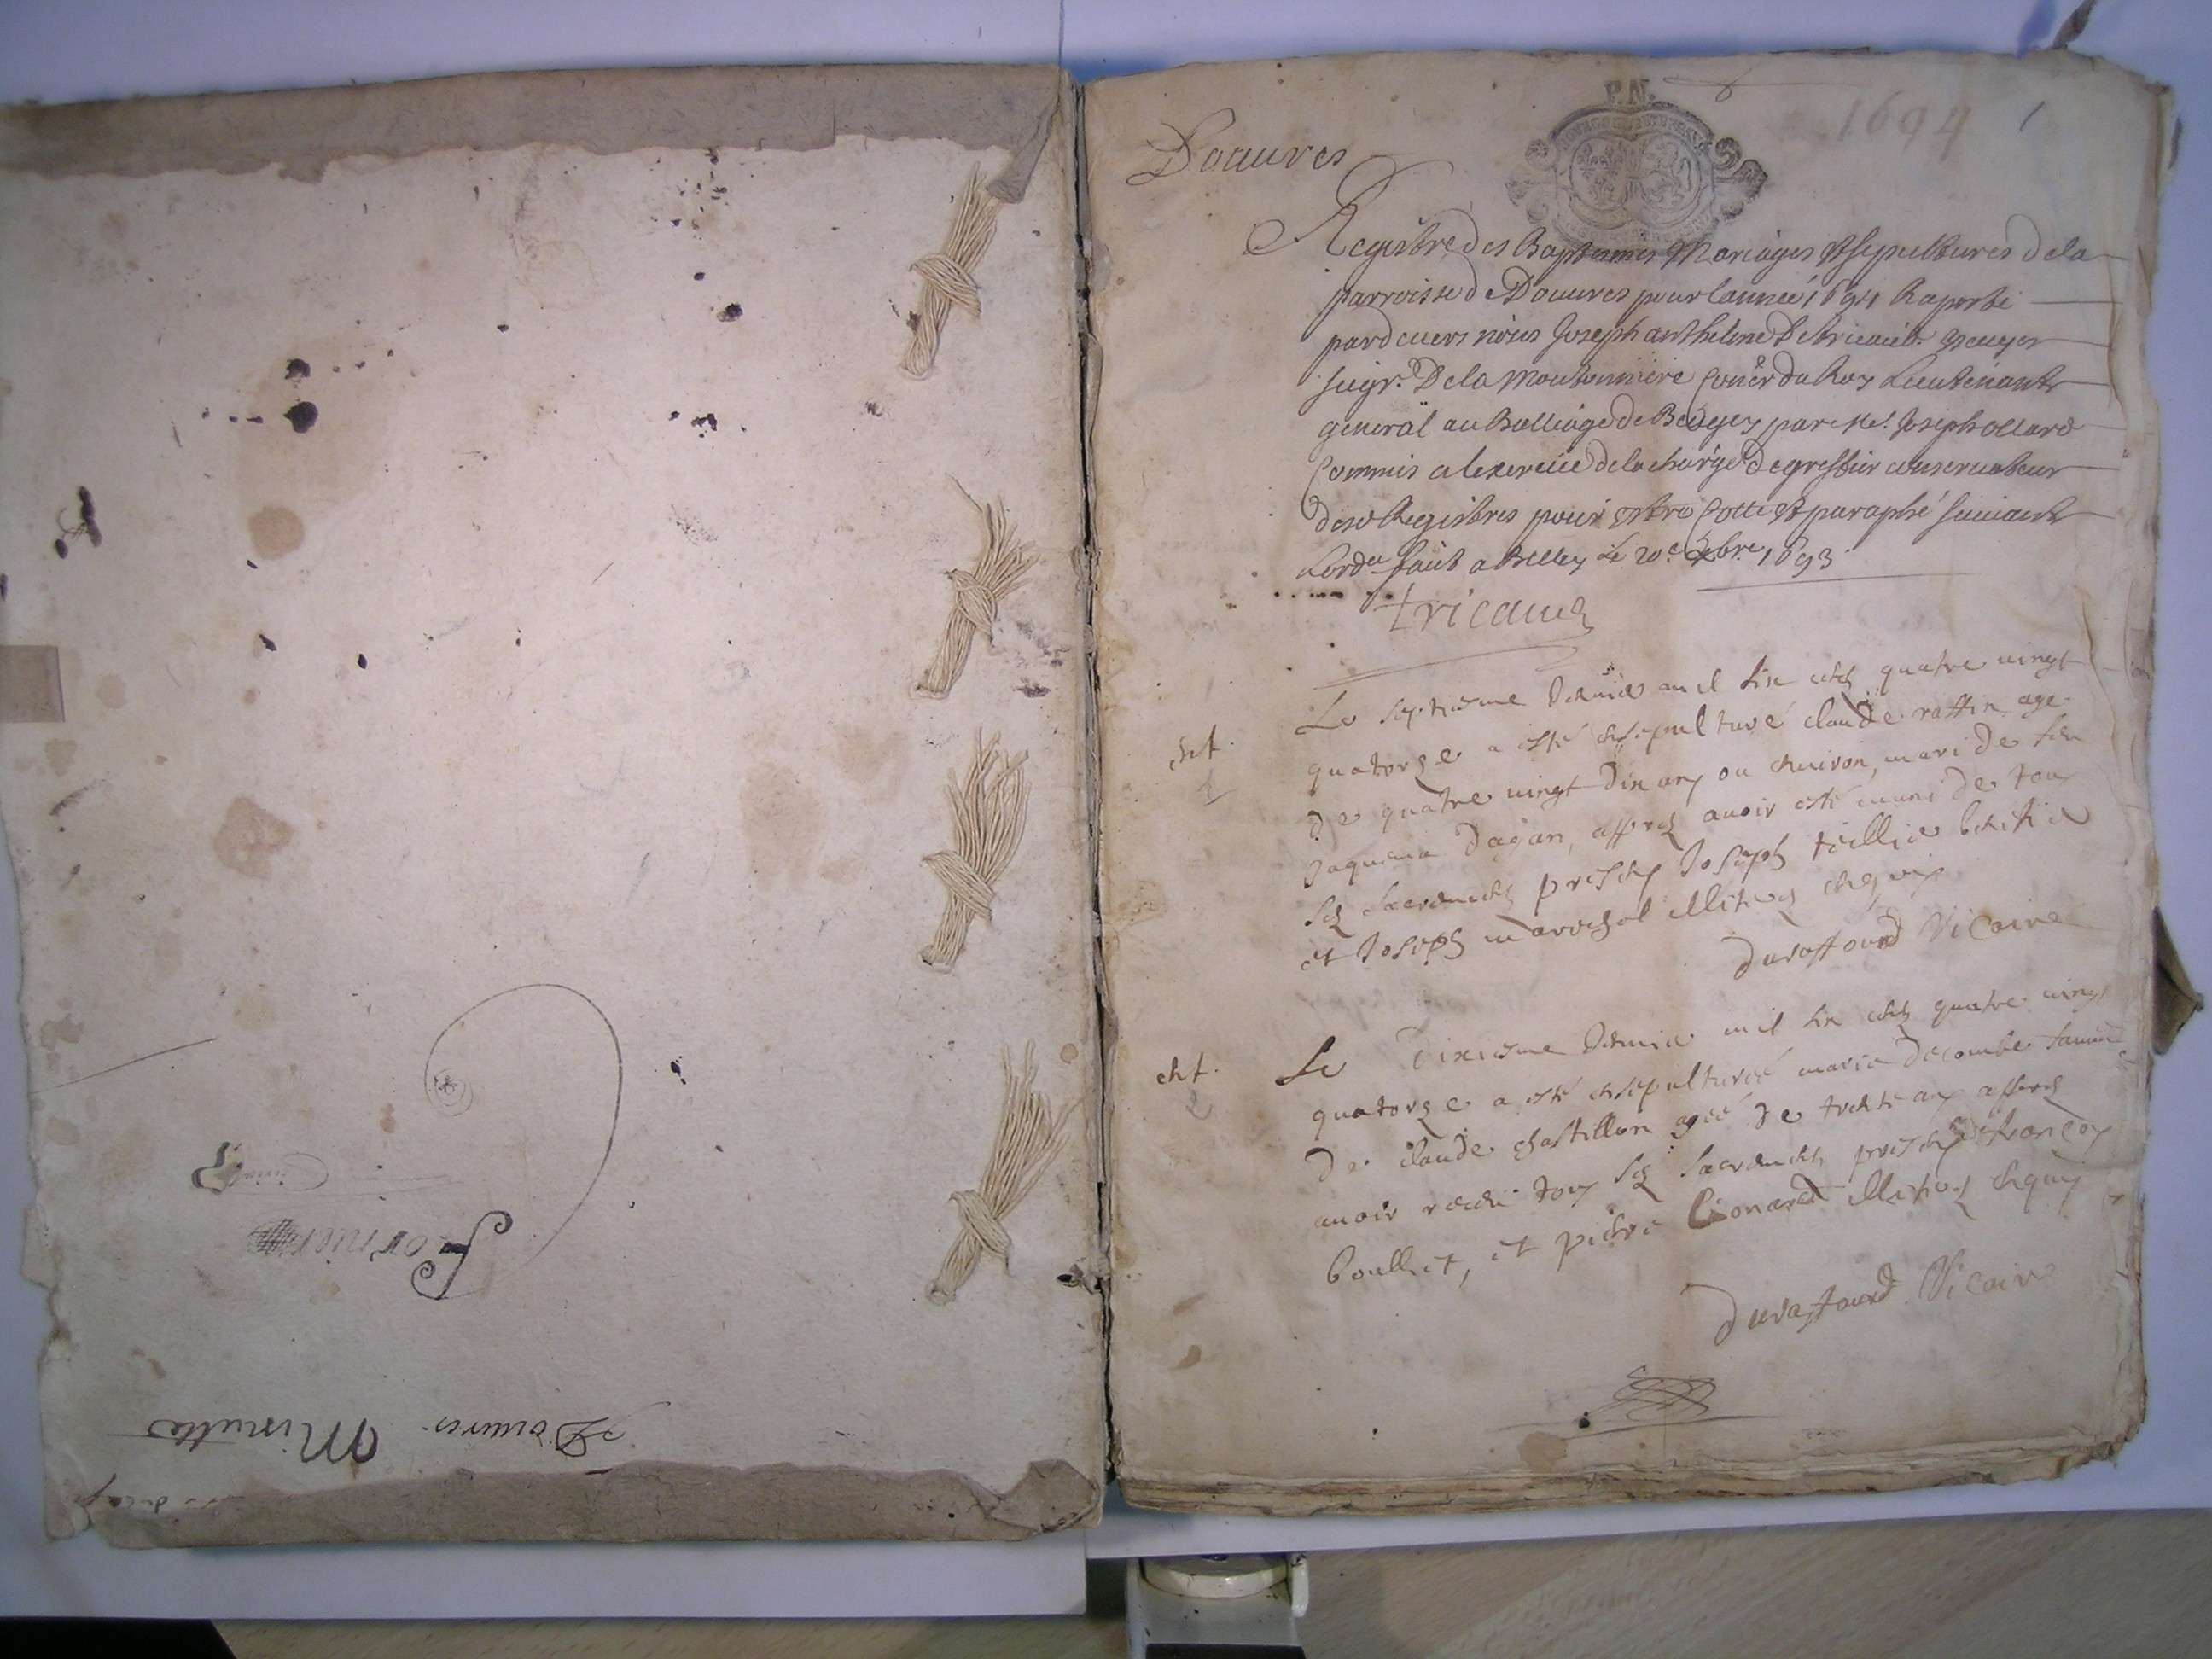 Minutte
Douures
P.N.
1694
1
Douures
Registre des Baptesmes Mariages et sepultures de la
parroisse de Douures pour lannee 1694 Raporté
pardeuers nous Joseph anthelme De tricaud Escuyer
seigr. De la Moutonniere Coner du Roy Lieutenant
general au Balliage de Beugey par Me. Joseph
Commis a lexercice de la charge De greffier conseruateur
desd Registres pour estre Cotté et paraphé suiuant
Lordce fait a Belley Le 20e xbre 1693
tricaud
ent.
1
Le septiesme Januier mil six cents quatre uingt
quatorze a esté ensepulturé claude raffin age
de quatre uingt dix ans ou enuiron, mari de feu
Jaquema dajan, apprez auoir esté muni de tous
sez sacrements presens Joseph tellier
et Joseph mareschal illiterez enquis
durafourd Vicaire
ent.
2
Le dixiesme Januier mil six cents quatre uingt
quatorze a esté ensepulturée marie decombe famme
de claude chastillon agée de trente ans apprez
auoir receu tous sez sacrements presens françois
boulliet, et pierre Léonard illiterez enquis
durafourd Vicaire